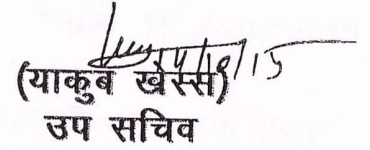 14/10/15
(याकुब खेस्स)
उप सचिव